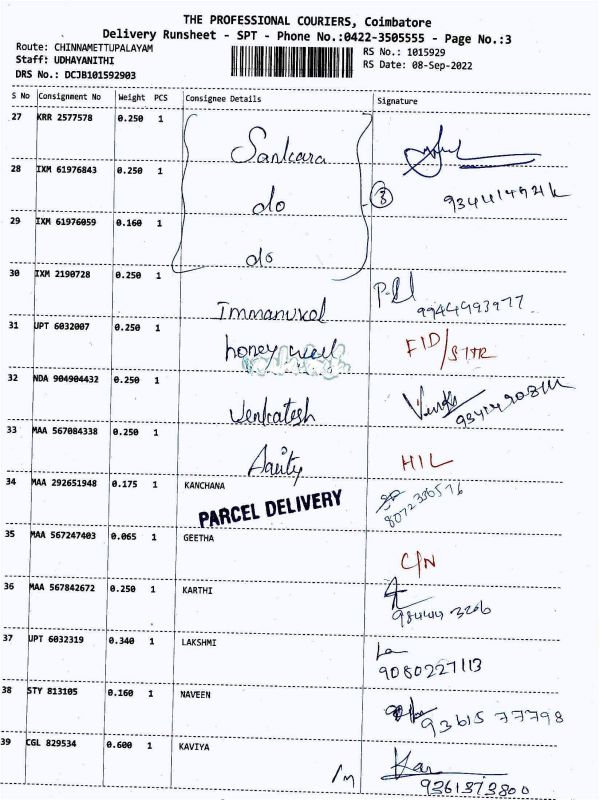 THE PROFESSIONAL COURIERS, Coimbatore
Delivery Runsheet - SPT - Phone No.:0422-3505555 - Page No.:3
Route: CHINNAMETTUPALAYAM
RS No.: 1015929
Staff: UDHAYANITHI
RS Date: 08-Sep-2022
DRS No.: DCJB101592903
S No Consignment No Weight PCS Consignee Details Signature
27 KRR 2577578 0.250 1 Sankara
28 IXM 61976843 0.250 1 do 3
29 IXM 61976059 0.160 1 do
30 IXM 2190728 0.250 1 Immanuvel 9944993977
31 UPT 6032007 0.250 1 honey well FID/
32 NDA 904904432 0.250 1 Venkatesh
33 MAA 567084338 0.250 1 HIL
34 MAA 292651948 0.175 1 KANCHANA
PARCEL DELIVERY
35 MAA 567247403 0.065 1 GEETHA C/N
36 MAA 567842672 0.250 1 KARTHI
37 UPT 6032319 0.340 1 LAKSHMI La 9080227113
38 STY 813105 0.160 1 NAVEEN 9361577798
39 CGL 829534 0.600 1 KAVIYA Kav 9361373800